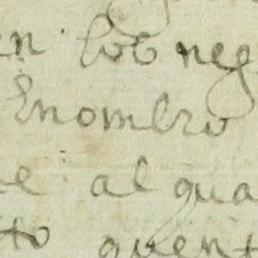 en los neg
Enombro
e al gua
to quent